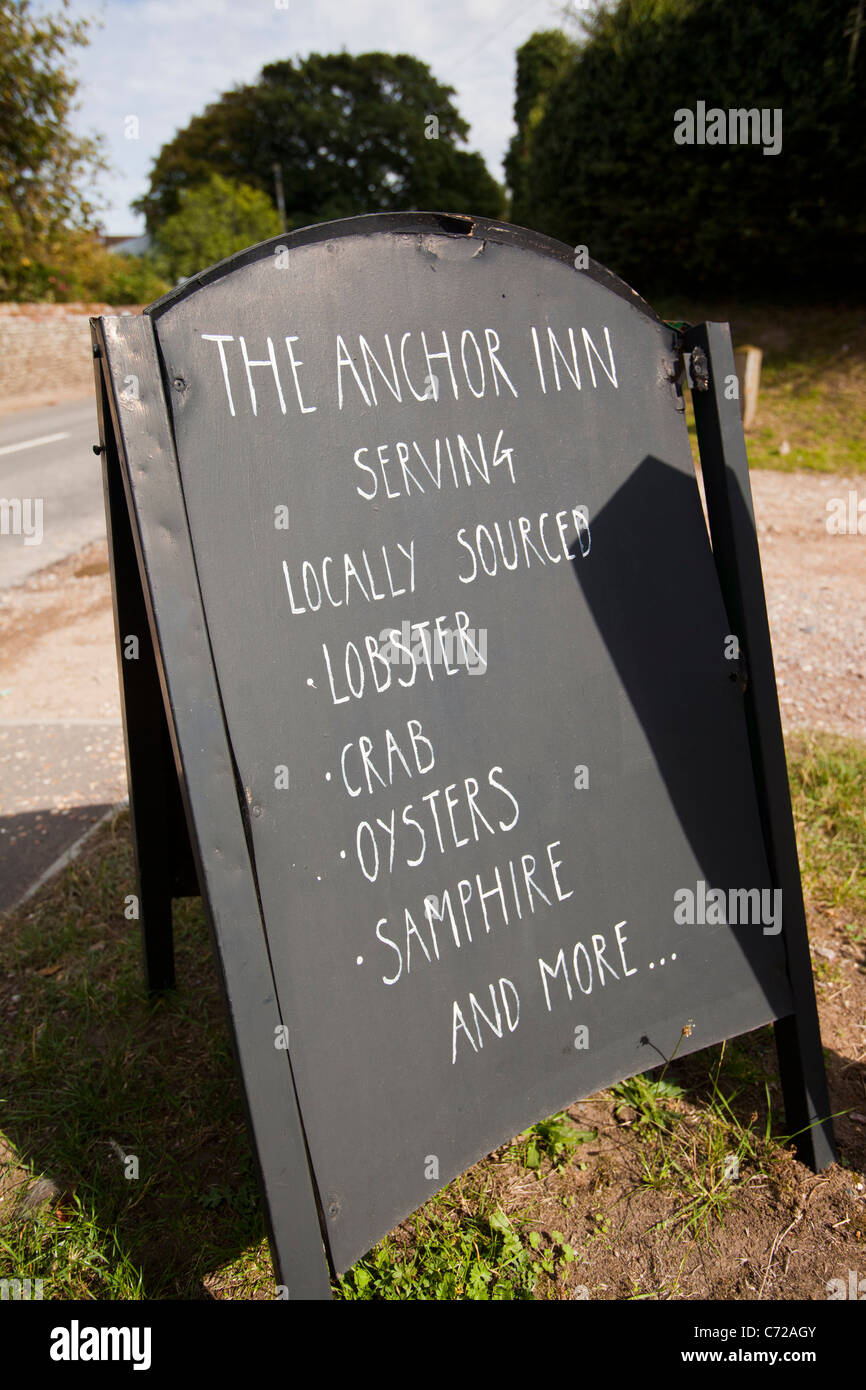 THE ANCHOR INN
SERVING
LOCALLY SOURCED
· LOBSTER
· CRAB
· OYSTERS
· SAMPHIRE
AND MORE...
alamy
Image ID: C72AGY
www.alamy.com